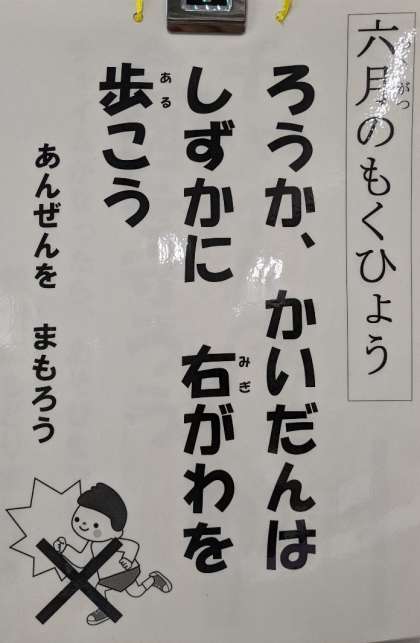 六月のもくひょう
ろうか、かいだんは
しずかに 右がわを
歩こう
あんぜんを まもろう